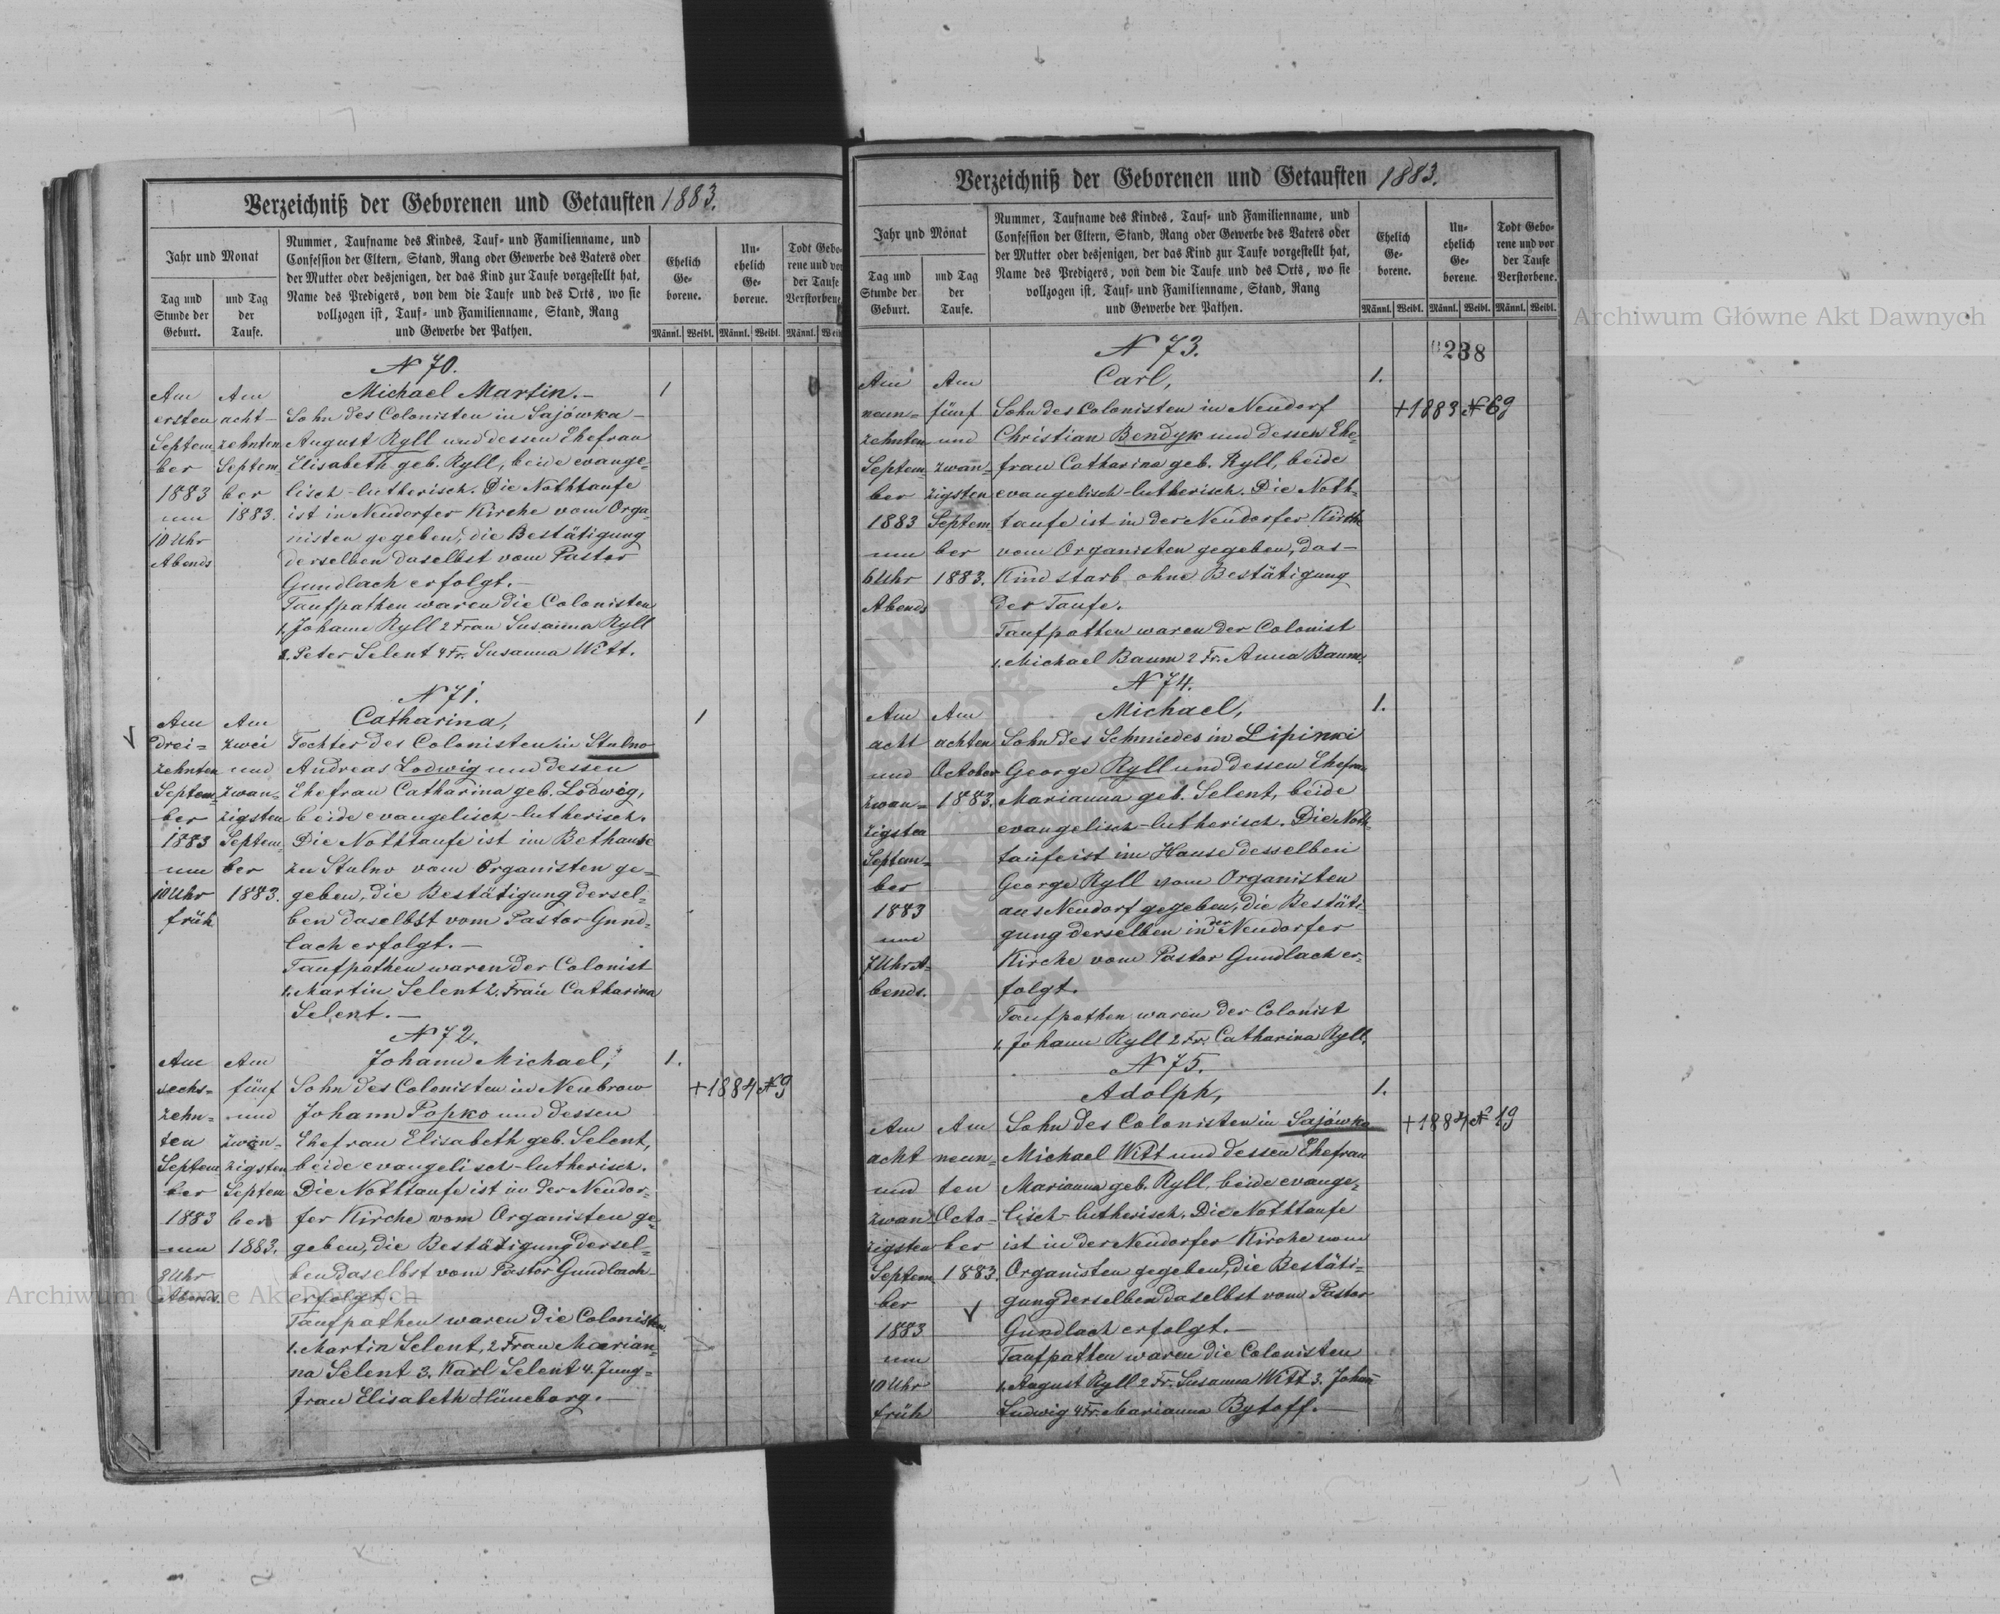 Verzeichniß der Geborenen und Getauften 1883.
Jahr und Monat
Tag und Stunde der Geburt.
und Tag der Taufe.
Nummer, Taufname des Kindes, Tauf- und Familienname, und
Confession der Eltern, Stand, Rang oder Gewerbe des Vaters oder
der Mutter oder desjenigen, der das Kind zur Taufe vorgestellt hat,
Name des Predigers, von dem die Taufe und des Orts, wo sie
vollzogen ist, Tauf- und Familienname, Stand, Rang
und Gewerbe der Pathen.
Ehelich Ge-borene.
Un-ehelich Ge-borene.
Todt Gebo-rene und vor der Taufe Verstorbene.
Männl. Weibl. Männl. Weibl. Männl. Weibl.
N 70.
Am ersten Septem-ber 1883 um 10 Uhr Abends
Am acht-zehnten Septem-ber 1883.
Michael Martin. – 1
Sohn des Colonisten in Sajówka –
August Ryll und dessen Ehefrau
Elisabeth geb. Ryll, beide evange-
lisch-lutherisch. Die Nothtaufe
ist in Neudorfer Kirche vom Orga-
nisten gegeben, die Bestätigung
derselben daselbst vom Pastor
Gundlach erfolgt. –
Taufpathen waren die Colonisten
1. Johann Ryll 2 Frau Susanna Ryll
3. Peter Selent 4 Fr. Susanna Witt.
N 71.
Am drei-zehnten Septem-ber 1883 um 10 Uhr früh
Am zwei und zwan-zigsten Septem-ber 1883.
Catharina, 1
Tochter des Colonisten in Stulno
Andreas Lodwig und dessen
Ehefrau Catharina geb. Lodwig,
beide evangelisch-lutherisch.
Die Nothtaufe ist im Bethause
zu Stulno vom Organisten ge-
geben, die Bestätigung dersel-
ben daselbst vom Pastor Gund-
lach erfolgt. –
Taufpathen waren der Colonist
1. Martin Selent 2. Frau Catharina
Selent. –
N 72.
Am sechs-zehn-ten Septem-ber 1883 um 8 Uhr Abends.
Am fünf und zwan-zigsten Septem-ber 1883.
Johann Michael, 1.
Sohn des Colonisten in Neubrow +1884 N 9
Johann Popko und dessen
Ehefrau Elisabeth geb. Selent,
beide evangelisch-lutherisch.
Die Nothtaufe ist in der Neudor-
fer Kirche vom Organisten ge-
geben, die Bestätigung dersel-
ben daselbst vom Pastor Gundlach
erfolgt. –
Taufpathen waren die Colonisten
1. Martin Selent, 2 Frau Marian-
na Selent 3. Karl Selent 4. Jung-
frau Elisabeth Hüneborg. –
Verzeichniß der Geborenen und Getauften 1883.
Jahr und Monat
Tag und Stunde der Geburt.
und Tag der Taufe.
Nummer, Taufname des Kindes, Tauf- und Familienname, und
Confession der Eltern, Stand, Rang oder Gewerbe des Vaters oder
der Mutter oder desjenigen, der das Kind zur Taufe vorgestellt hat,
Name des Predigers, von dem die Taufe und des Orts, wo sie
vollzogen ist, Tauf- und Familienname, Stand, Rang
und Gewerbe der Pathen.
Ehelich Ge-borene.
Un-ehelich Ge-borene.
Todt Gebo-rene und vor der Taufe Verstorbene.
Männl. Weibl. Männl. Weibl. Männl. Weibl.
238
N 73.
Am neun-zehnten Septem-ber 1883 um 6 Uhr Abends
Am fünf und zwan-zigsten Septem-ber 1883.
Carl, 1.
Sohn des Colonisten in Neudorf +1883 N 69
Christian Bendyk und dessen Ehe-
frau Catharina geb. Ryll, beide
evangelisch-lutherisch. Die Noth-
taufe ist in der Neudorfer Kirche
vom Organisten gegeben, das –
Kind starb ohne Bestätigung
der Taufe.
Taufpatten waren der Colonist
1. Michael Baum 2 Fr. Anna Baum.
N 74.
Am acht und zwan-zigsten Septem-ber 1883 um 7 Uhr A-bends.
Am achten October 1883.
Michael, 1.
Sohn des Schmiedes in Lipinki
George Ryll und dessen Ehefrau
Marianna geb. Selent, beide
evangelisch-lutherisch. Die Noth-
taufe ist im Hause desselben
George Ryll vom Organisten
aus Neudorf gegeben, die Bestäti-
gung derselben in der Neudorfer
Kirche vom Pastor Gundlach er-
folgt.
Taufpathen waren der Colonist
1. Johann Ryll 2 Fr. Catharina Ryll.
N 75.
Am acht und zwan-zigsten Septem-ber 1883 um 10 Uhr früh
Am neun-ten Octo-ber 1883.
Adolph, 1.
Sohn des Colonisten in Sajówka +1884 N 19
Michael Witt und dessen Ehefrau
Marianna geb. Ryll, beide evange-
lisch-lutherisch. Die Nothtaufe
ist in der Neudorfer Kirche vom
Organisten gegeben, die Bestäti-
gung derselben daselbst vom Pastor
Gundlach erfolgt. –
Taufpathen waren die Colonisten
1. August Ryll 2 Fr. Susanna Witt 3. Johann
Ludwig 4 Fr. Marianna Bytoff. –
Archiwum Główne Akt Dawnych
Archiwum Główne Akt Dawnych